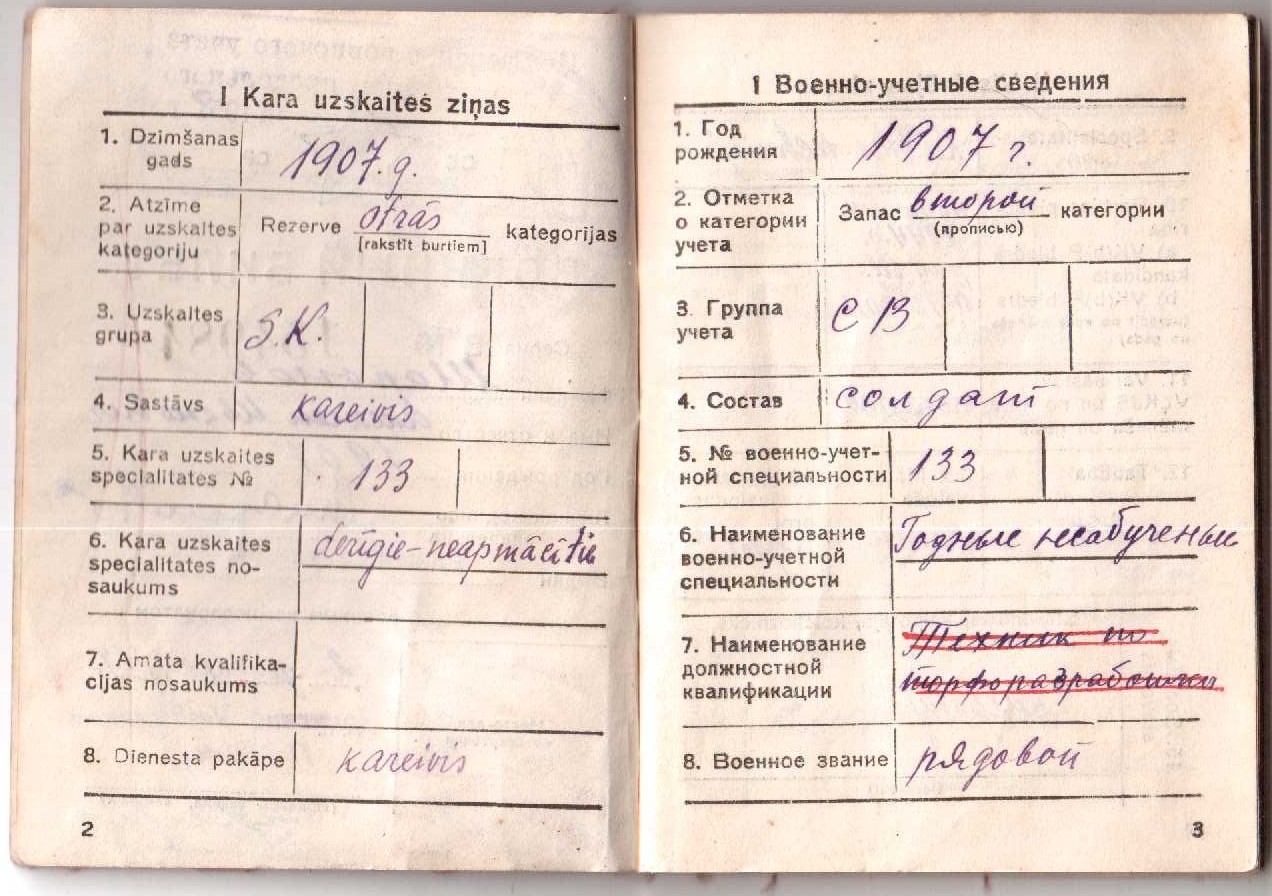 I Kara uzskaites ziņas
1. Dzimšanas
gads
1907. g.
2. Atzīme
par uzskaites
kategoriju
Rezerve otrās kategorijas
[rakstīt burtiem]
3. Uzskaites
grupa
S.K.
4. Sastāvs
kareivis
5. Kara uzskaites
specialitates №
133
6. Kara uzskaites
specialitates no-
saukums
derīgie-neapmācītie
7. Amata kvalifika-
cijas nosaukums
8. Dienesta pakāpe
kareivis
2
I Военно-учетные сведения
1. Год
рождения
1907 г.
2. Отметка
о категории
учета
Запас второй категории
(прописью)
3. Группа
учета
СВ
4. Состав
солдат
5. № военно-учет-
ной специальности
133
6. Наименование
военно-учетной
специальности
Годные необученые
7. Наименование
должностной
квалификации
Техник по
торфоразработки
8. Военное звание
рядовой
3